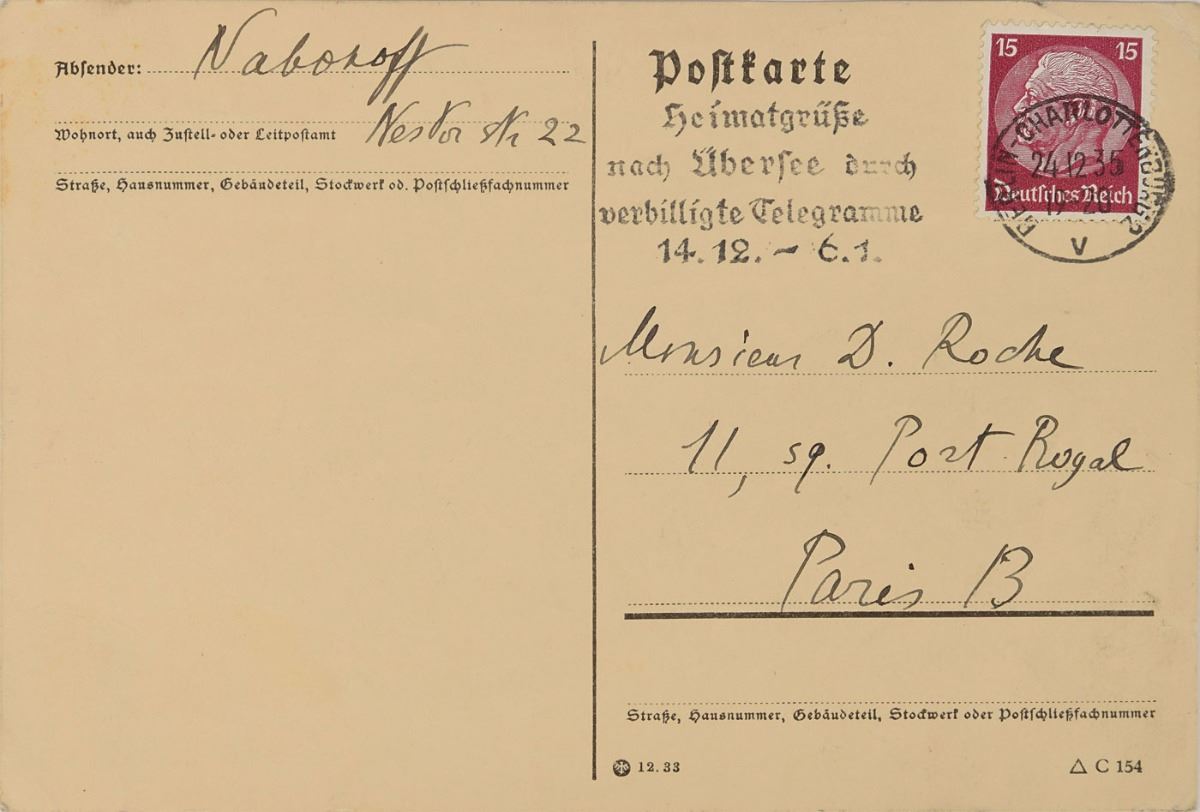 Absender: Nabokoff
Wohnort, auch Zustell- oder Leitpostamt Nestor str 22
Straße, Hausnummer, Gebäudeteil, Stockwerk od. Postschließfachnummer
Postkarte
Heimatgrüße
nach Übersee durch
verbilligte Telegramme
14.12. – 6.1.
15 15
Deutsches Reich
BERLIN-CHARLOTTENBURG 2
24.12.35
19-20
V
Monsieur D. Roche
11, sq. Port Royal
Paris 13
Straße, Hausnummer, Gebäudeteil, Stockwerk oder Postschließfachnummer
12.33
C 154